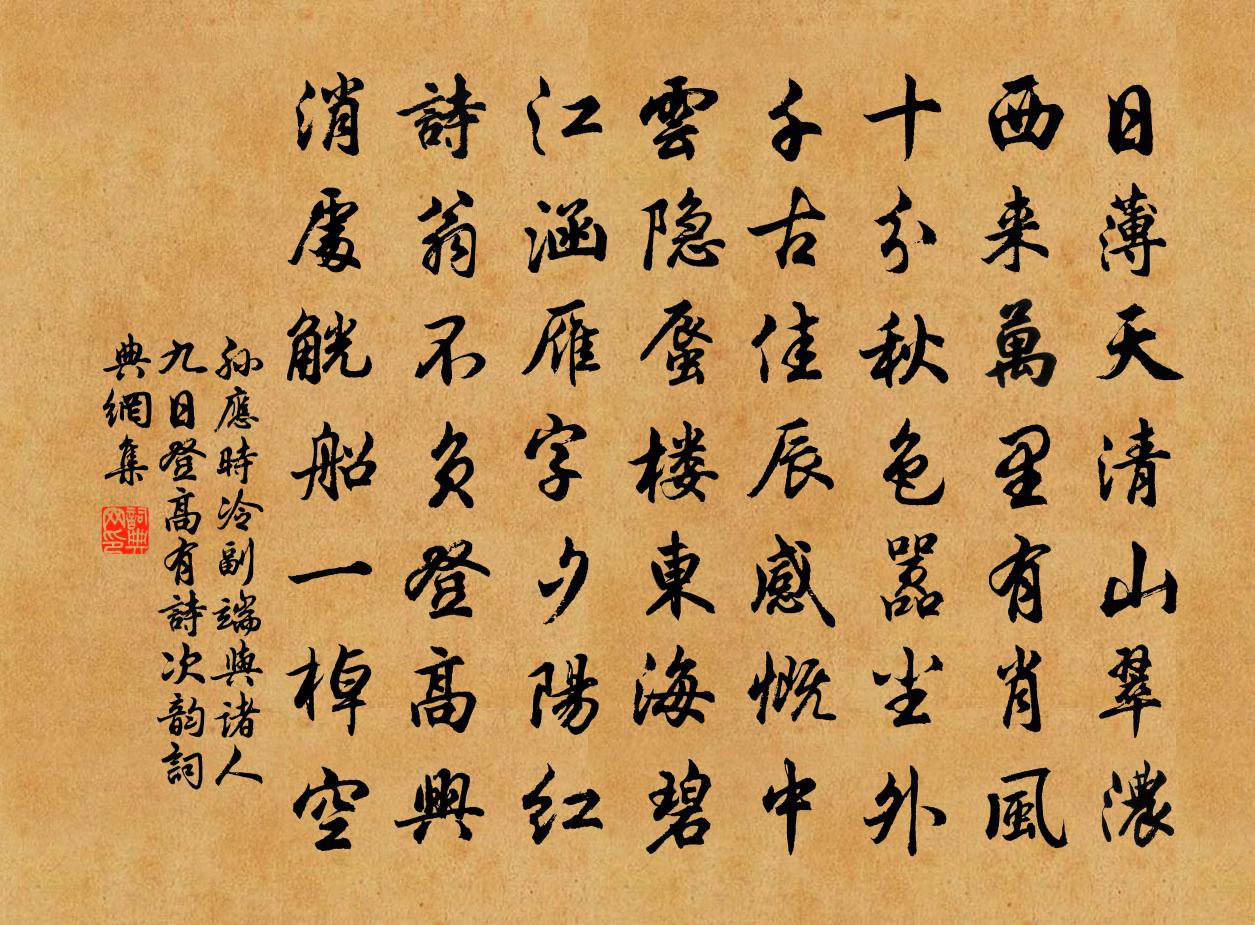 日薄天清山翠濃
西来萬里有肖風
十分秋色嚣尘外
千古佳辰感慨中
雲隐蜃楼東海碧
江涵雁字夕陽红
詩翁不負登高興
消處觥船一棹空
孙應時冷副端與诸人
九日登高有詩次韵詞
典網集
詞典网印